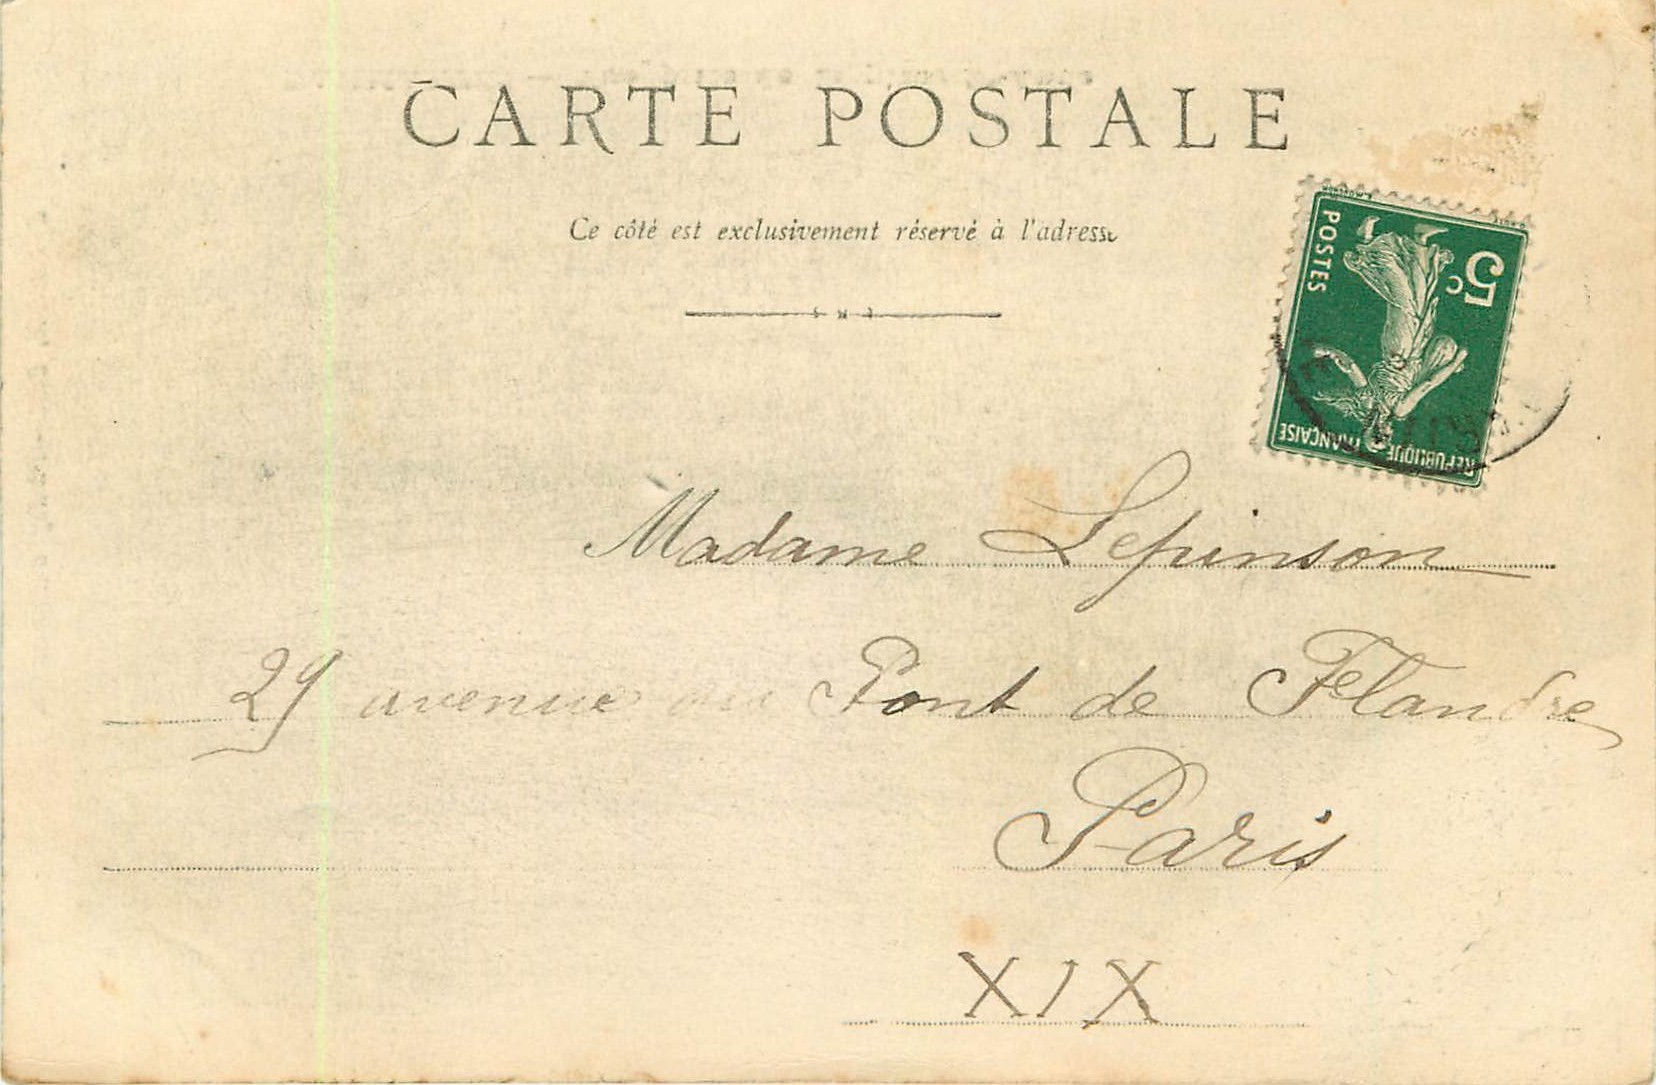 CARTE POSTALE
Ce côté est exclusivement réservé à l'adresse
5c
POSTES
REPUBLIQUE FRANÇAISE
Madame Lepinson
29 avenue du Pont de Flandre
Paris
XIX